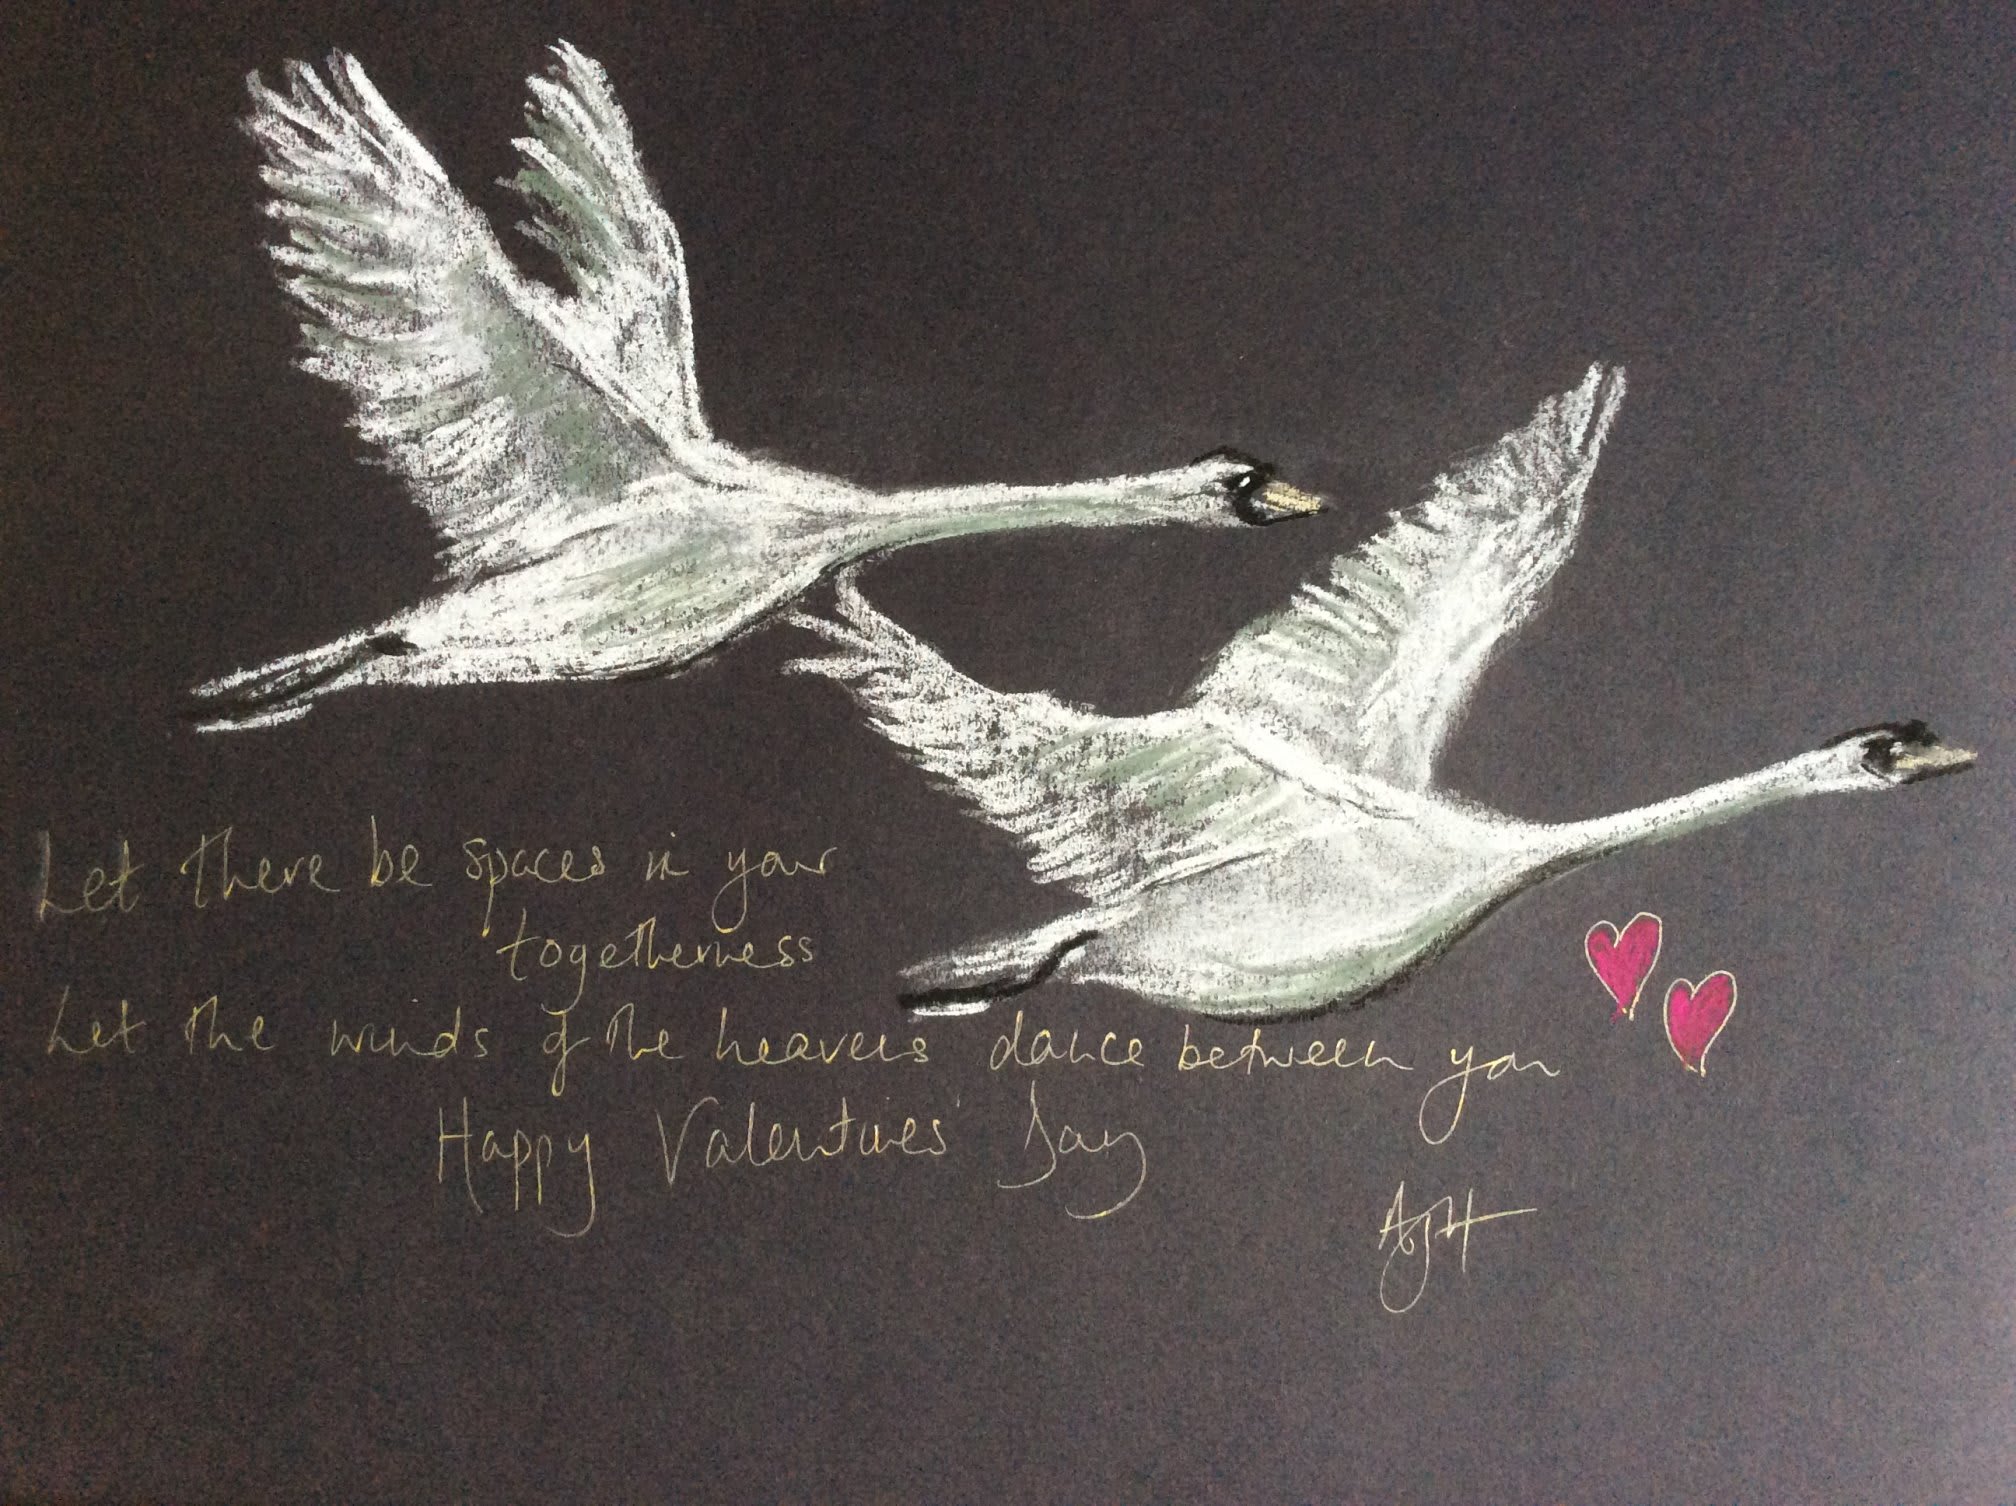 Let there be spaces in your
togetherness
Let the winds of the heavens dance between you
Happy Valentines' Day
AJH